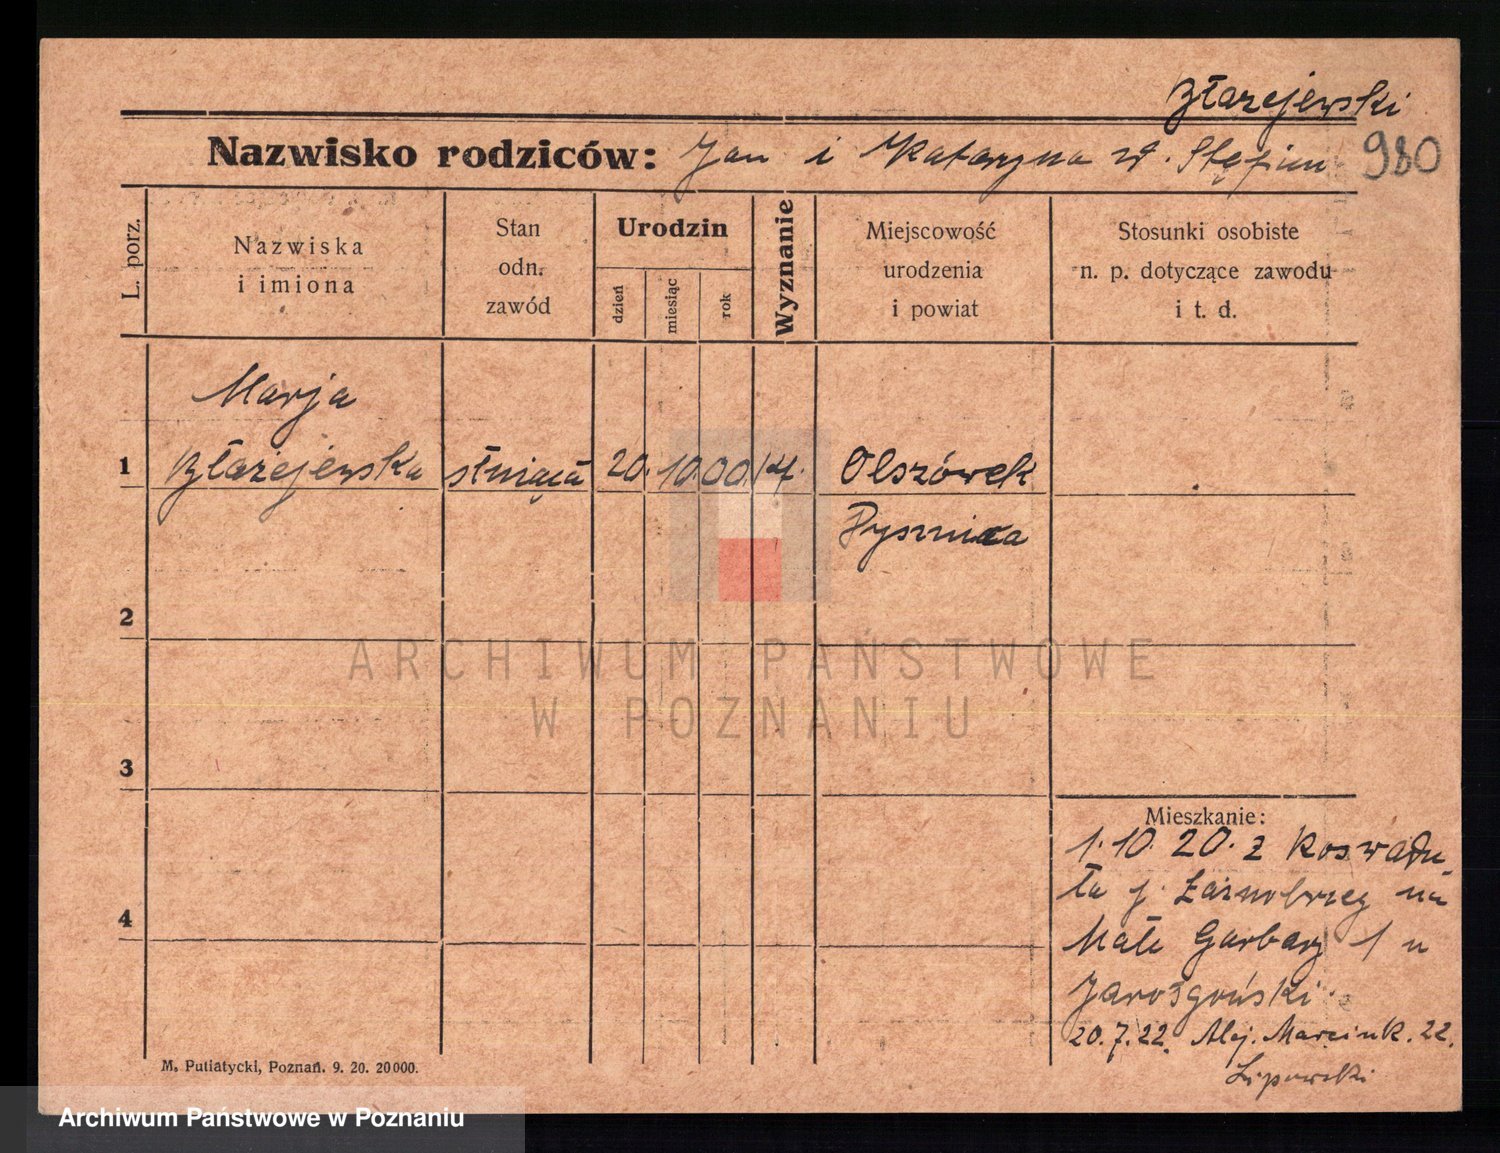 Błażejewski
Nazwisko rodziców: Jan i Katarzyna z d. Stępien 980
L. porz.
Nazwiska
i imiona
Stan
odn.
zawód
Urodzin
dzień
miesiąc
rok
Wyznanie
Miejscowość
urodzenia
i powiat
Stosunki osobiste
n. p. dotyczące zawodu
i t. d.
Marja
1 Błażejewska służąca 20. 10. 00. Olszówek
Pysznica
2
3
4
ARCHIWUM PAŃSTWOWE
W POZNANIU
Mieszkanie:
1. 10. 20. z Rozwadu
Małe Garbary 1 u
20. 7. 22. Alej. Marcink. 22.
Lipowski
M. Putiatycki, Poznań. 9. 20. 20000.
Archiwum Państwowe w Poznaniu